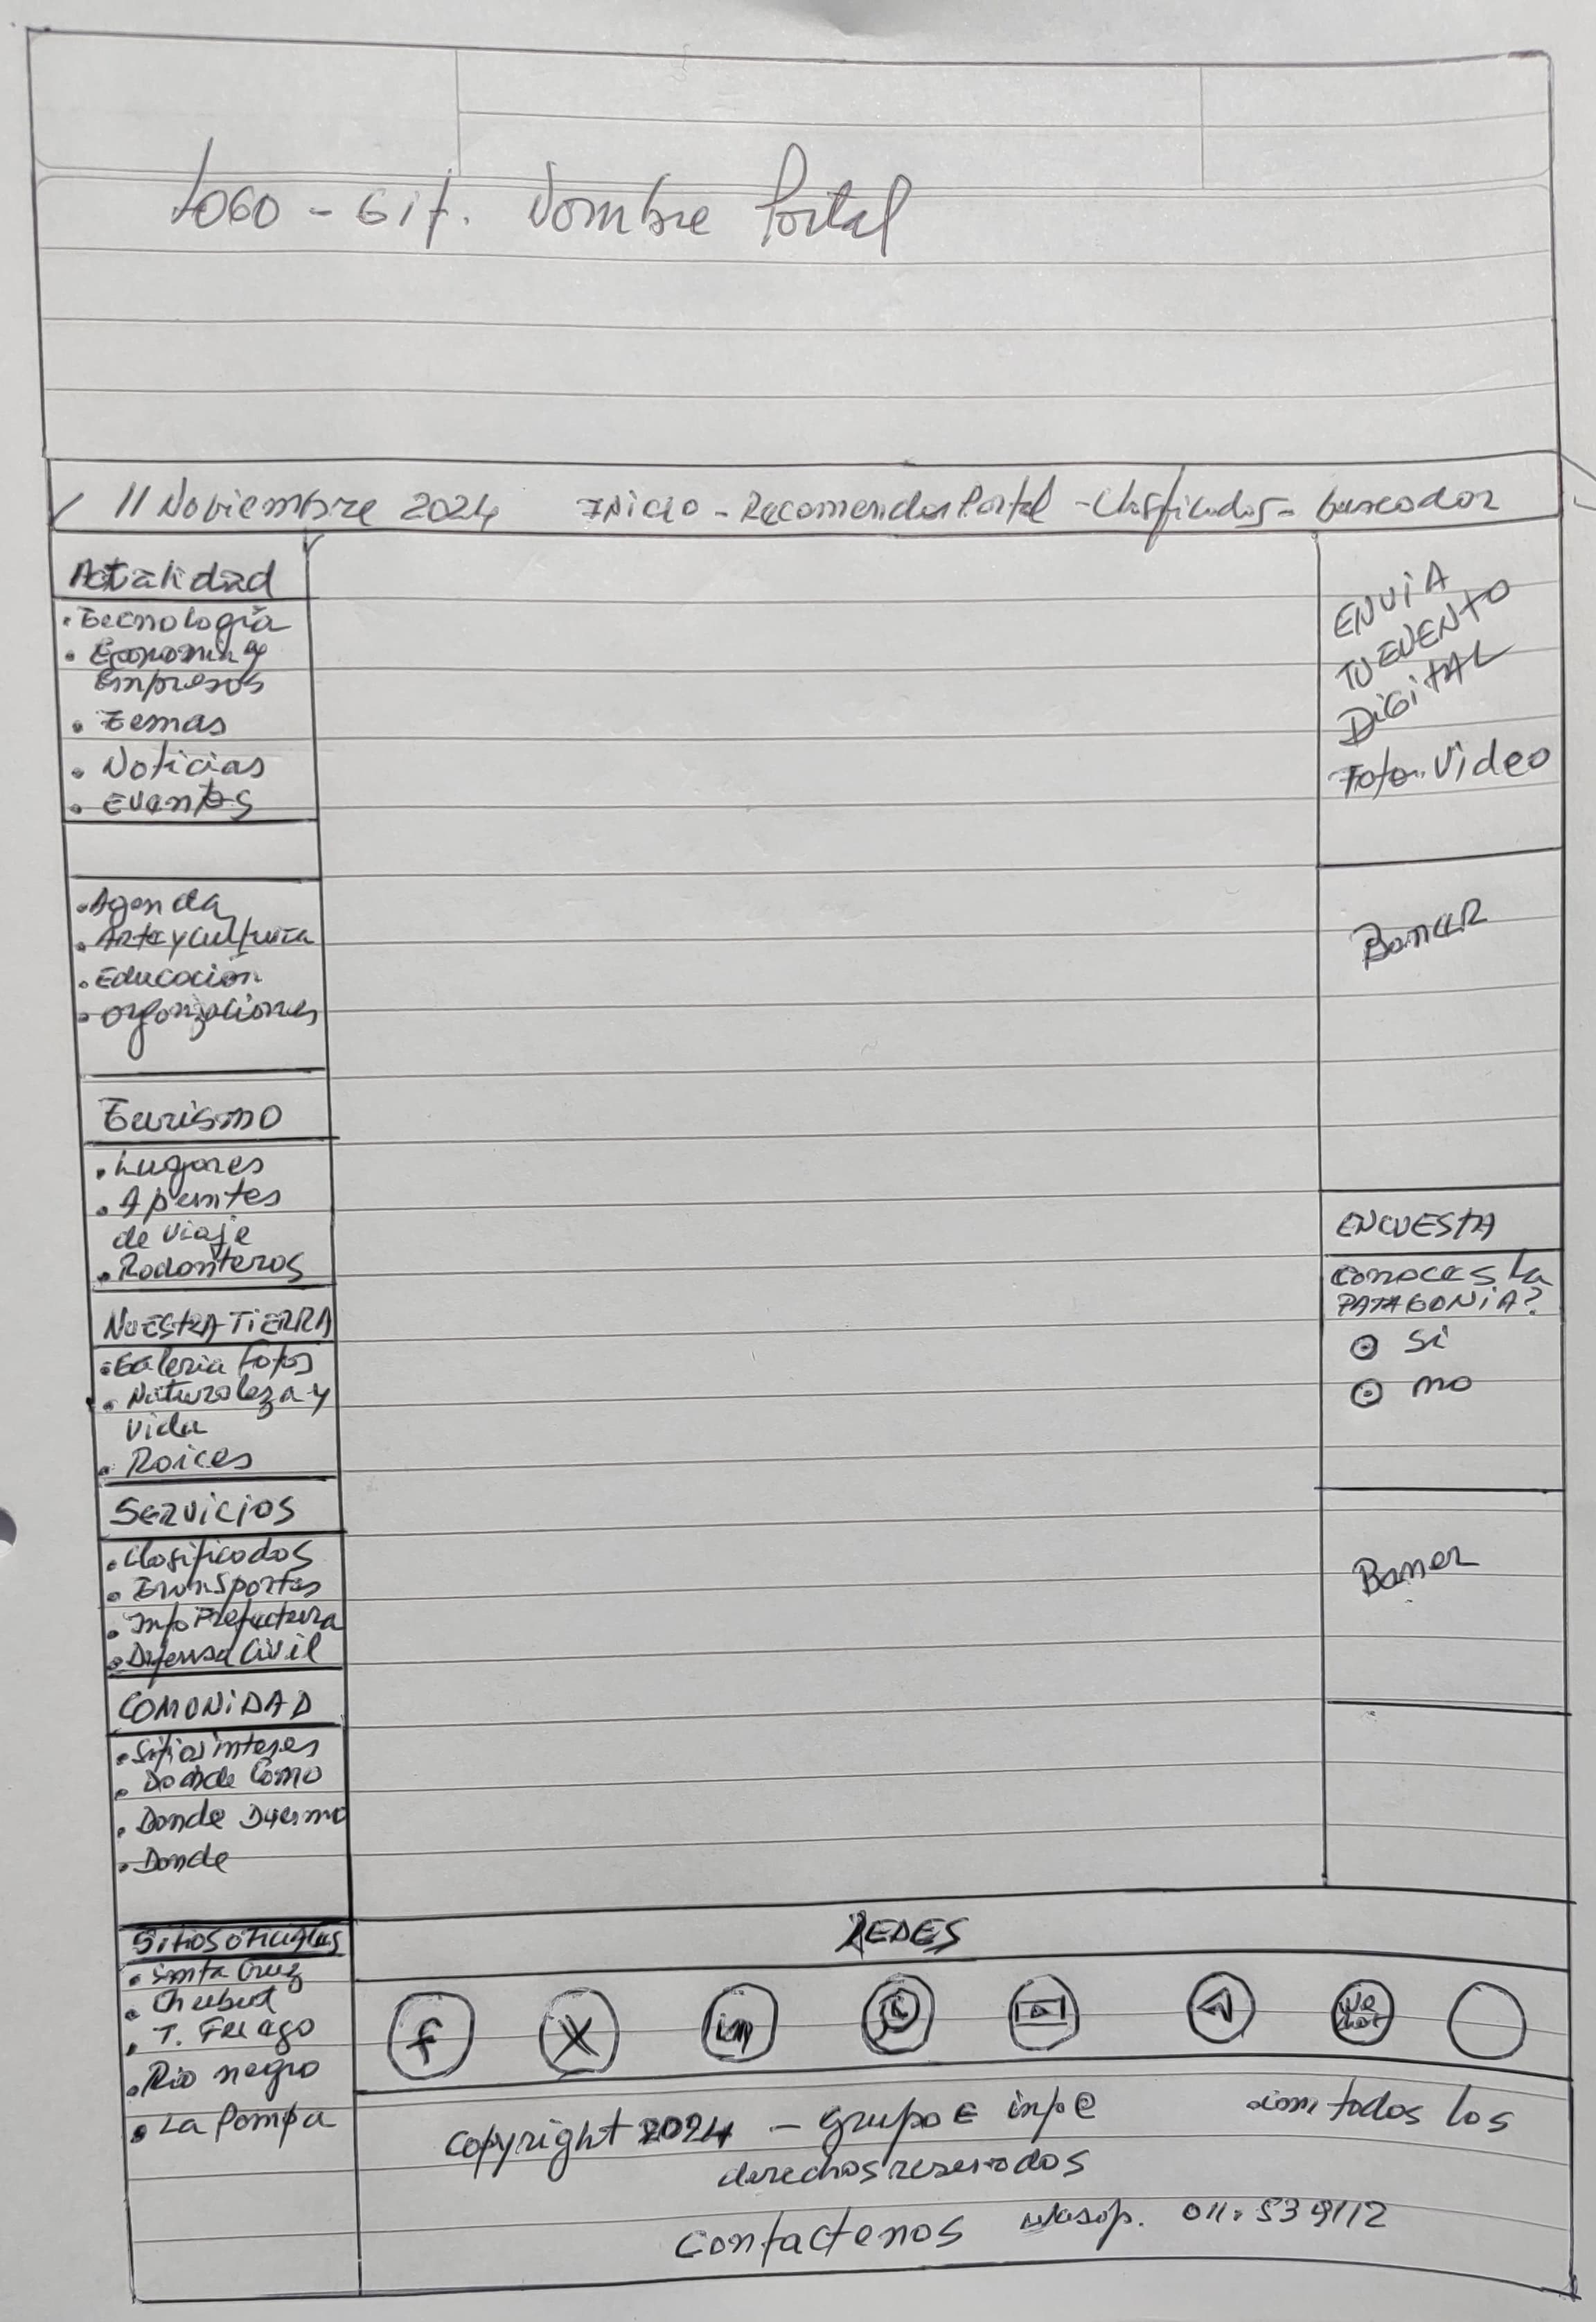 Logo - Gif. Nombre Portal
11 Noviembre 2024 Inicio - Recomendar Portal - Clasificados - buscador
Actualidad
• Tecnología
• Economia y
Empresas
• Temas
• Noticias
• Eventos
• Agenda
• Arte y cultura
• Educación
• Organizaciones
Turismo
• Lugares
• Apuntes
de viaje
• Rodanteros
NUESTRA TIERRA
• Galeria Fotos
• Naturaleza y
Vida
• Raices
SERVICIOS
• Clasificados
• Transportes
• Info Prefectura
• Defensa Civil
COMUNIDAD
• Sitios interes
• Donde Como
• Donde Duermo
• Donde
Sitios oficiales
• Santa Cruz
• Chubut
• T. Fuego
• Rio negro
• La Pampa
ENVIA
TU EVENTO
DIGITAL
Foto. Video
Banner
ENCUESTA
CONOCES La
PATAGONIA?
Si
no
Baner
REDES
f X in We chat
Copyright 2024 - grupo E inf@ .com todos los
derechos reservados
Contactenos Wasap. 011. 539112